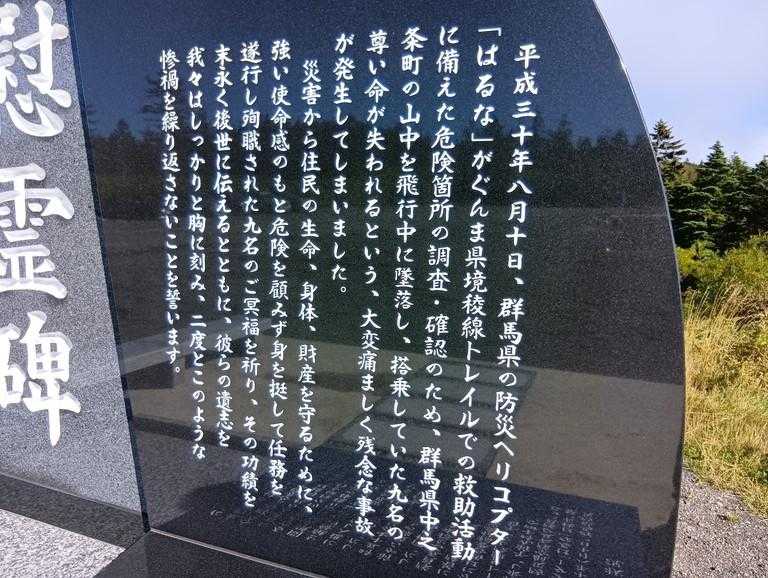 慰霊碑
平成三十年八月十日、群馬県の防災ヘリコプター
「はるな」がぐんま県境稜線トレイルでの救助活動
に備えた危険箇所の調査・確認のため、群馬県中之
条町の山中を飛行中に墜落し、搭乗していた九名の
尊い命が失われるという、大変痛ましく残念な事故
が発生してしまいました。
災害から住民の生命、身体、財産を守るために、
強い使命感のもと危険を顧みず身を挺して任務を
遂行し殉職された九名のご冥福を祈り、その功績を
末永く後世に伝えるとともに、彼らの遺志を
我々はしっかりと胸に刻み、二度とこのような
惨禍を繰り返さないことを誓います。